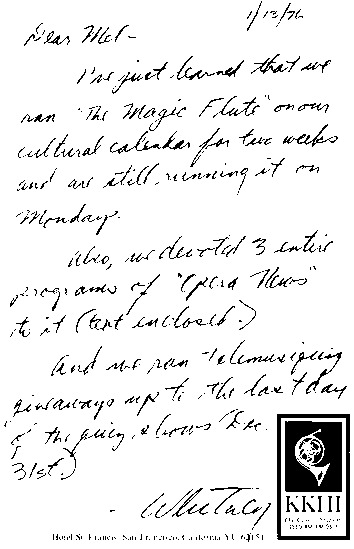 1/13/76
Dear Mel -
I've just learned that we
ran "The Magic Flute" on our
cultural calendar for two weeks
and are still running it on
Monday.
Also, we devoted 3 entire
programs of "Opera News"
to it (text enclosed.)
And we ran
giveaways up to the last day
of the shows (Dec.
31st.)
- Whitney
KKHI
Hotel St. Francis, San Francisco, California